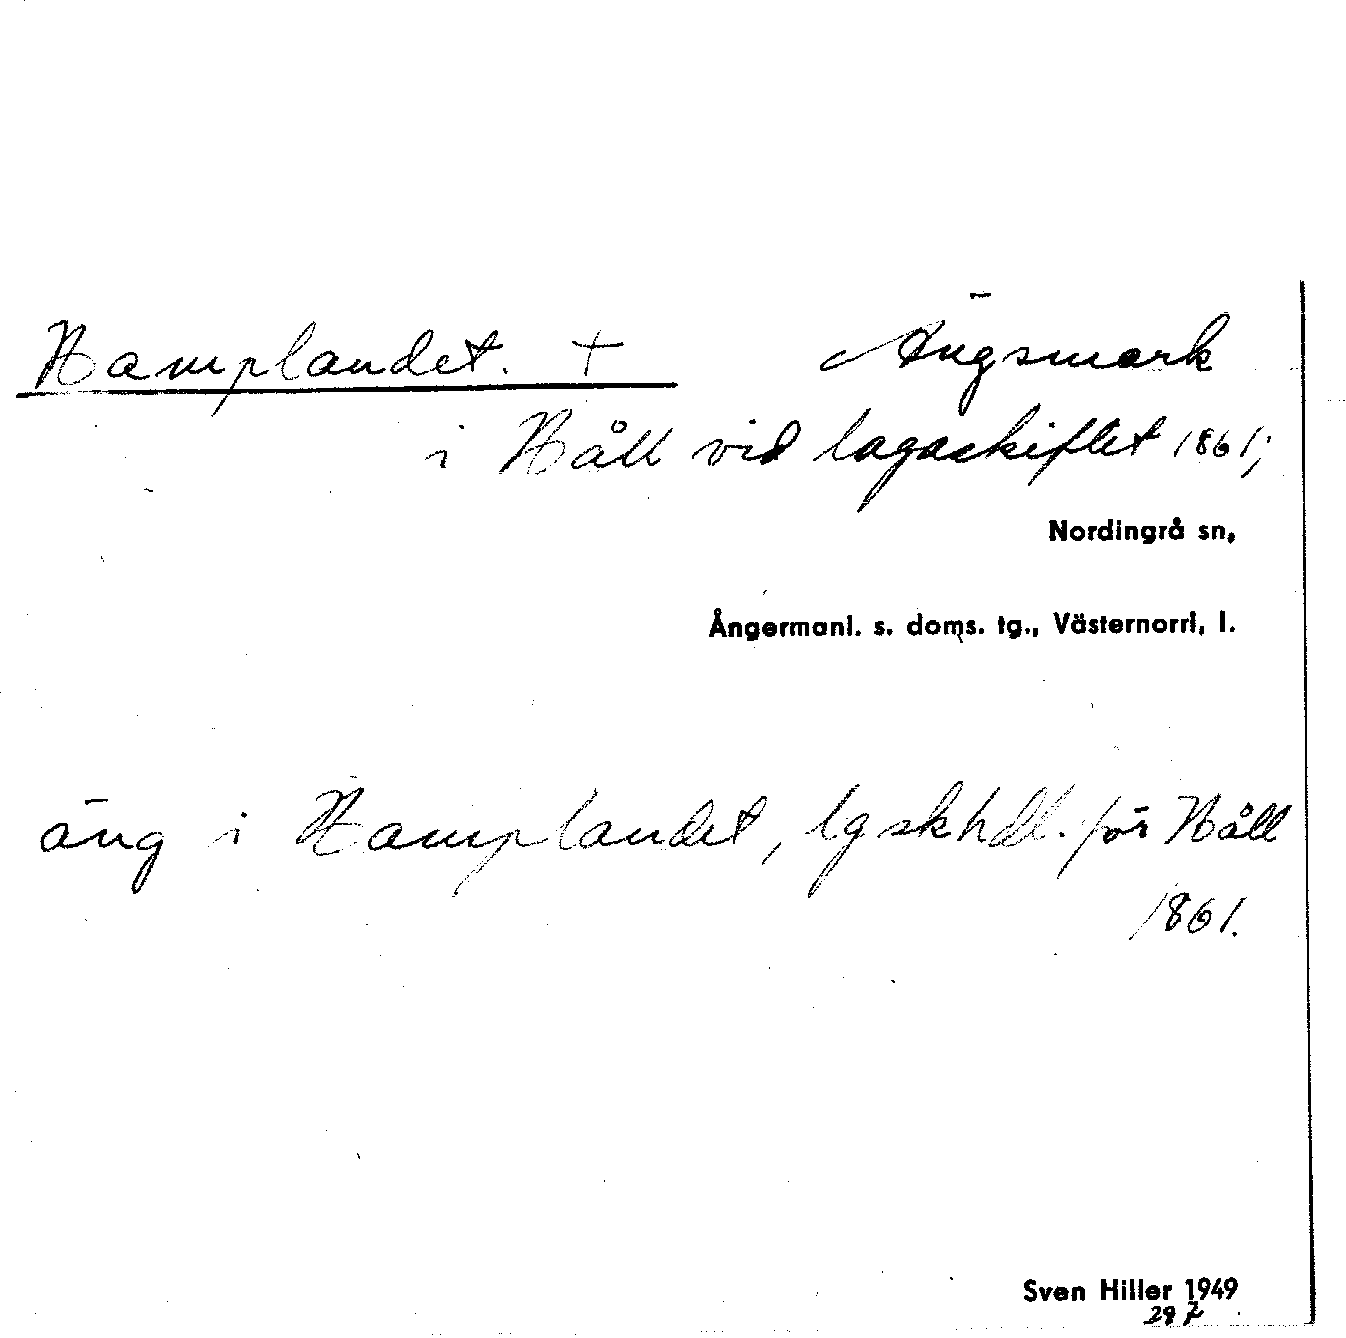 Hamplandet. + Ängsmark
i Håll vid lagaskiftet 1861;
Nordingrå sn,
Ångermanl. s. doms. tg., Västernorrl, l.
äng i Hamplandet, lgskhdl. för Håll
1861.
Sven Hiller 1949
29 7